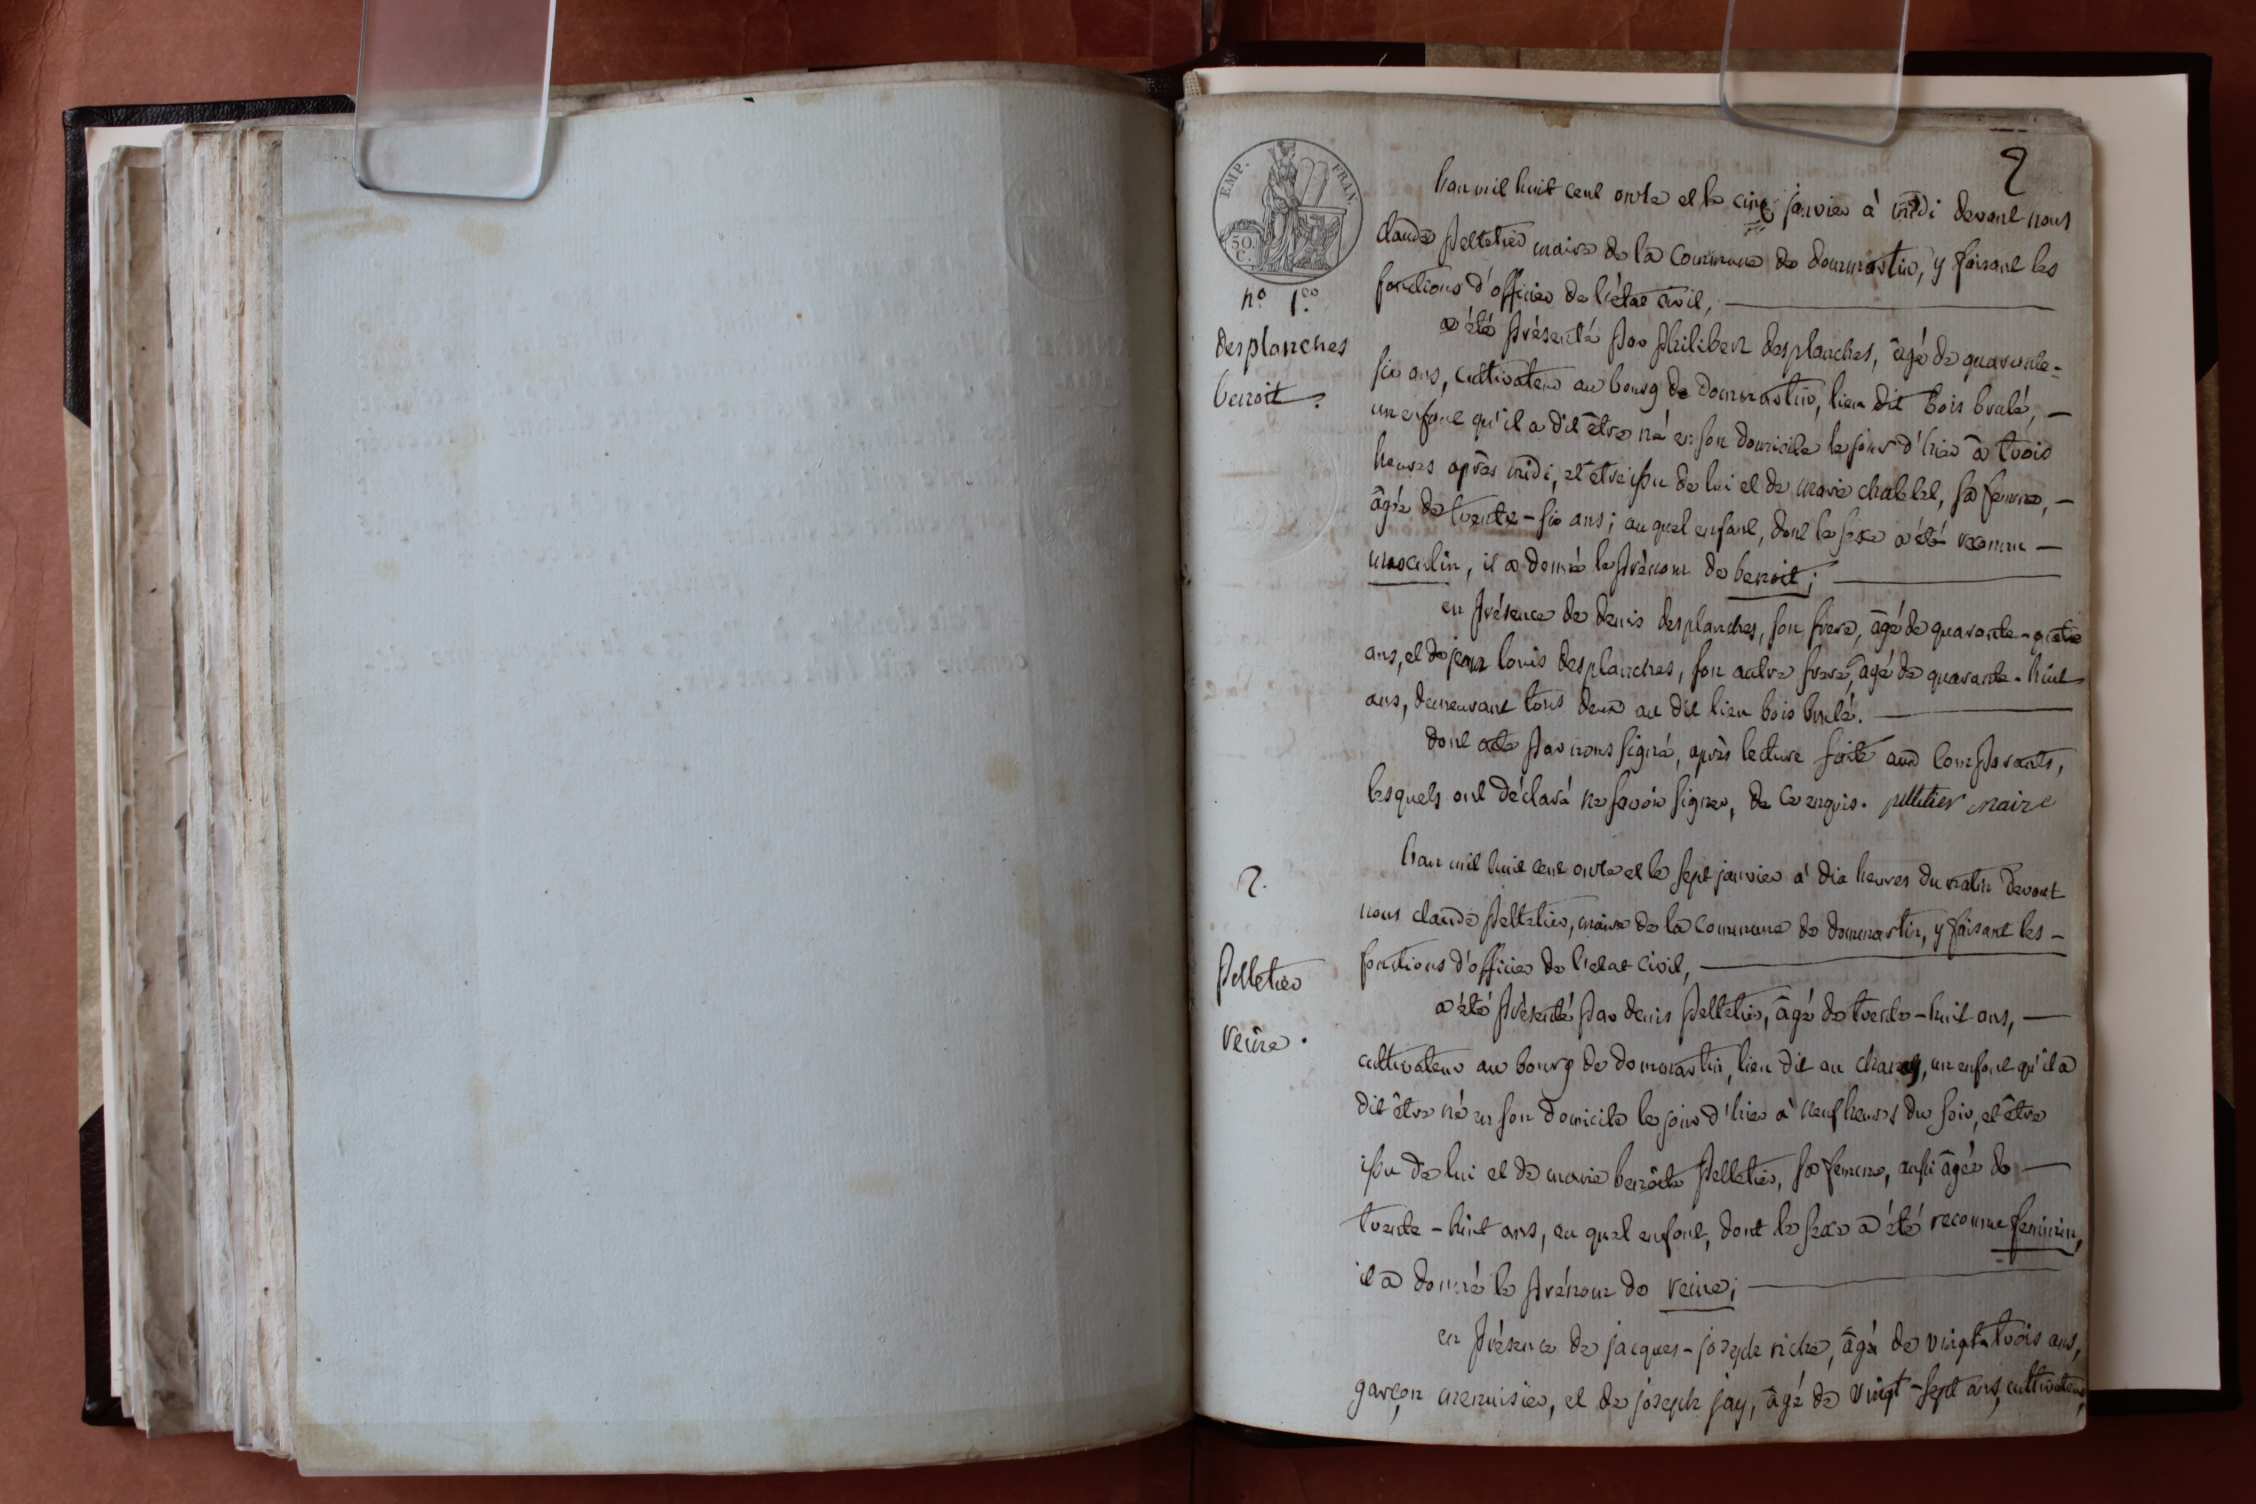 2
EMP. FRAN.
50 C.
n.o 1.er
desplanches
benoit.
l'an mil huit cent onze et le cinq janvier à midi devant nous
claude pelletier maire de la commune de dommartin, y faisant les
fonctions d'officier de l'état civil,
a été présenté par philibert desplanches, âgé de quarante-
six ans, cultivateur au bourg de dommartin, lieu dit bois brulé,
un enfant qu'il a dit être né en son domicile le jour d'hier à trois
heures après midi, et être issu de lui et de marie sa femme,
âgée de trente-six ans; au quel enfant, dont le sexe a été reconnu
masculin, il a donné le prénom de benoit;
en présence de denis desplanches, son frere, âgé de quarante-quatre
ans, et de jean louis desplanches, son autre frere, âgé de quarante-huit
ans, demeurant tous deux au dit lieu bois brulé.
dont acte par nous signé, après lecture faite aux comparants,
lesquels ont déclaré ne savoir signer, de ce enquis. pelletier maire
2.
pelletier
reine.
l'an mil huit cent onze et le sept janvier à dix heures du matin devant
nous claude pelletier, maire de la commune de dommartin, y faisant les
fonctions d'officier de l'etat civil,
a été présenté par denis pelletier, âgé de trente-huit ans,
cultivateur au bourg de dommartin, lieu dit au, un enfant qu'il a
dit être né en son domicile le jour d'hier à neuf heures du soir, et être
issu de lui et de marie benoite pelletier, sa femme, aussi âgée de
trente-huit ans, au quel enfant, dont le sexe a été reconnu feminin,
il a donné le prénom de reine;
en présence de jacques-joseph riche, âgé de vingt-trois ans,
garçon menuisier, et de joseph jay, âgé de vingt-sept ans, cultivateur,